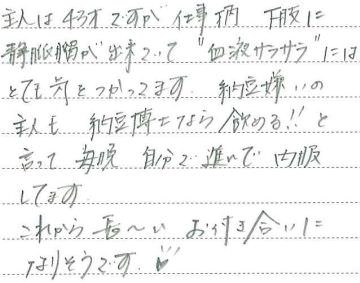 主人は43才ですが 仕事柄 下肢に
静脈瘤が出来ていて "血液サラサラ"には
とても気をつかってます. 納豆嫌いの
主人も 納豆博士なら飲める!! と
言って 毎晩 自分で進んで内服
してます
これから 長〜い お付き合いに
なりそうです.